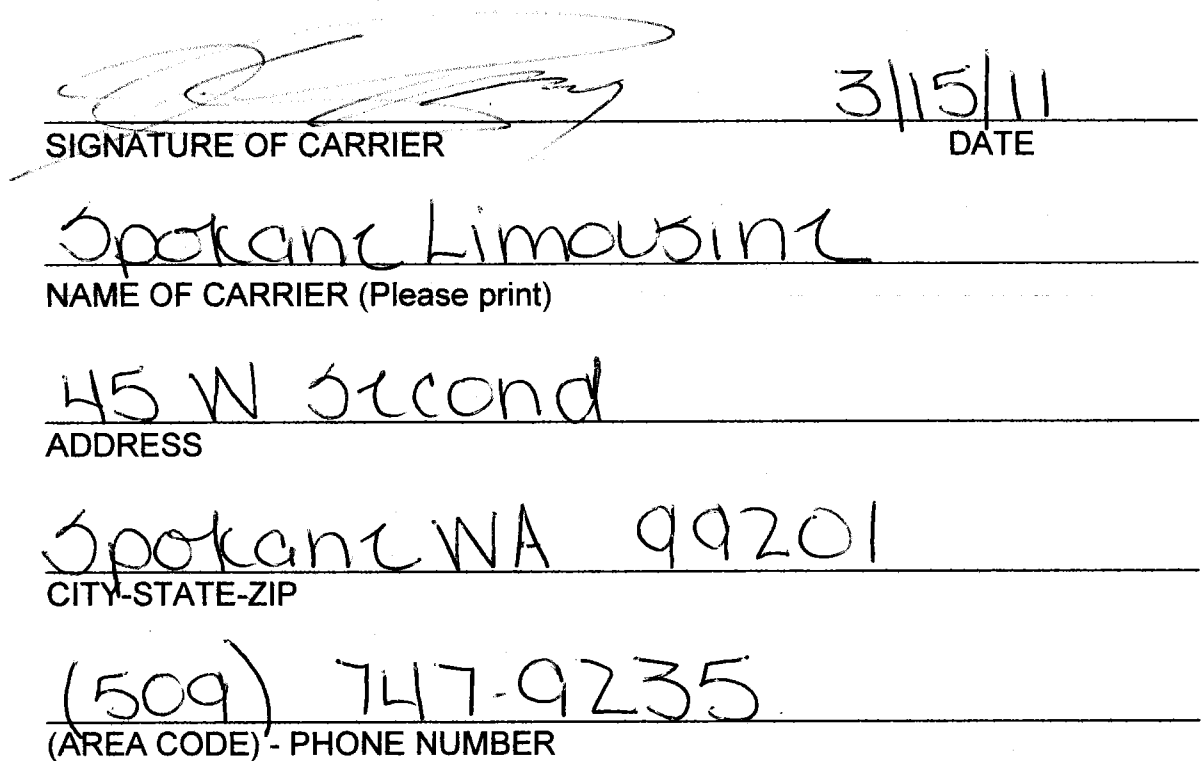 3/15/11
SIGNATURE OF CARRIER DATE
Spokane Limousine
NAME OF CARRIER (Please print)
45 W Second
ADDRESS
Spokane WA 99201
CITY-STATE-ZIP
(509) 747-9235
(AREA CODE) - PHONE NUMBER